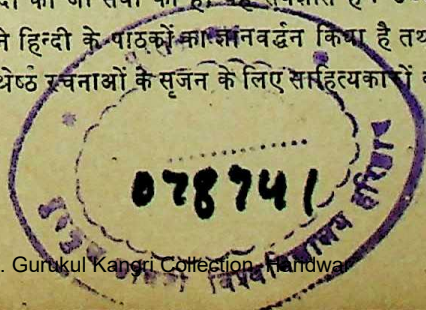 ने हिन्दी के पाठकों का ज्ञानवर्द्धन किया है तथ
श्रेष्ठ रचनाओं के सृजन के लिए साहित्यकारों
078741
विश्वविद्यालय हरिद्वार
. Gurukul Kangri Collection, Haridwar